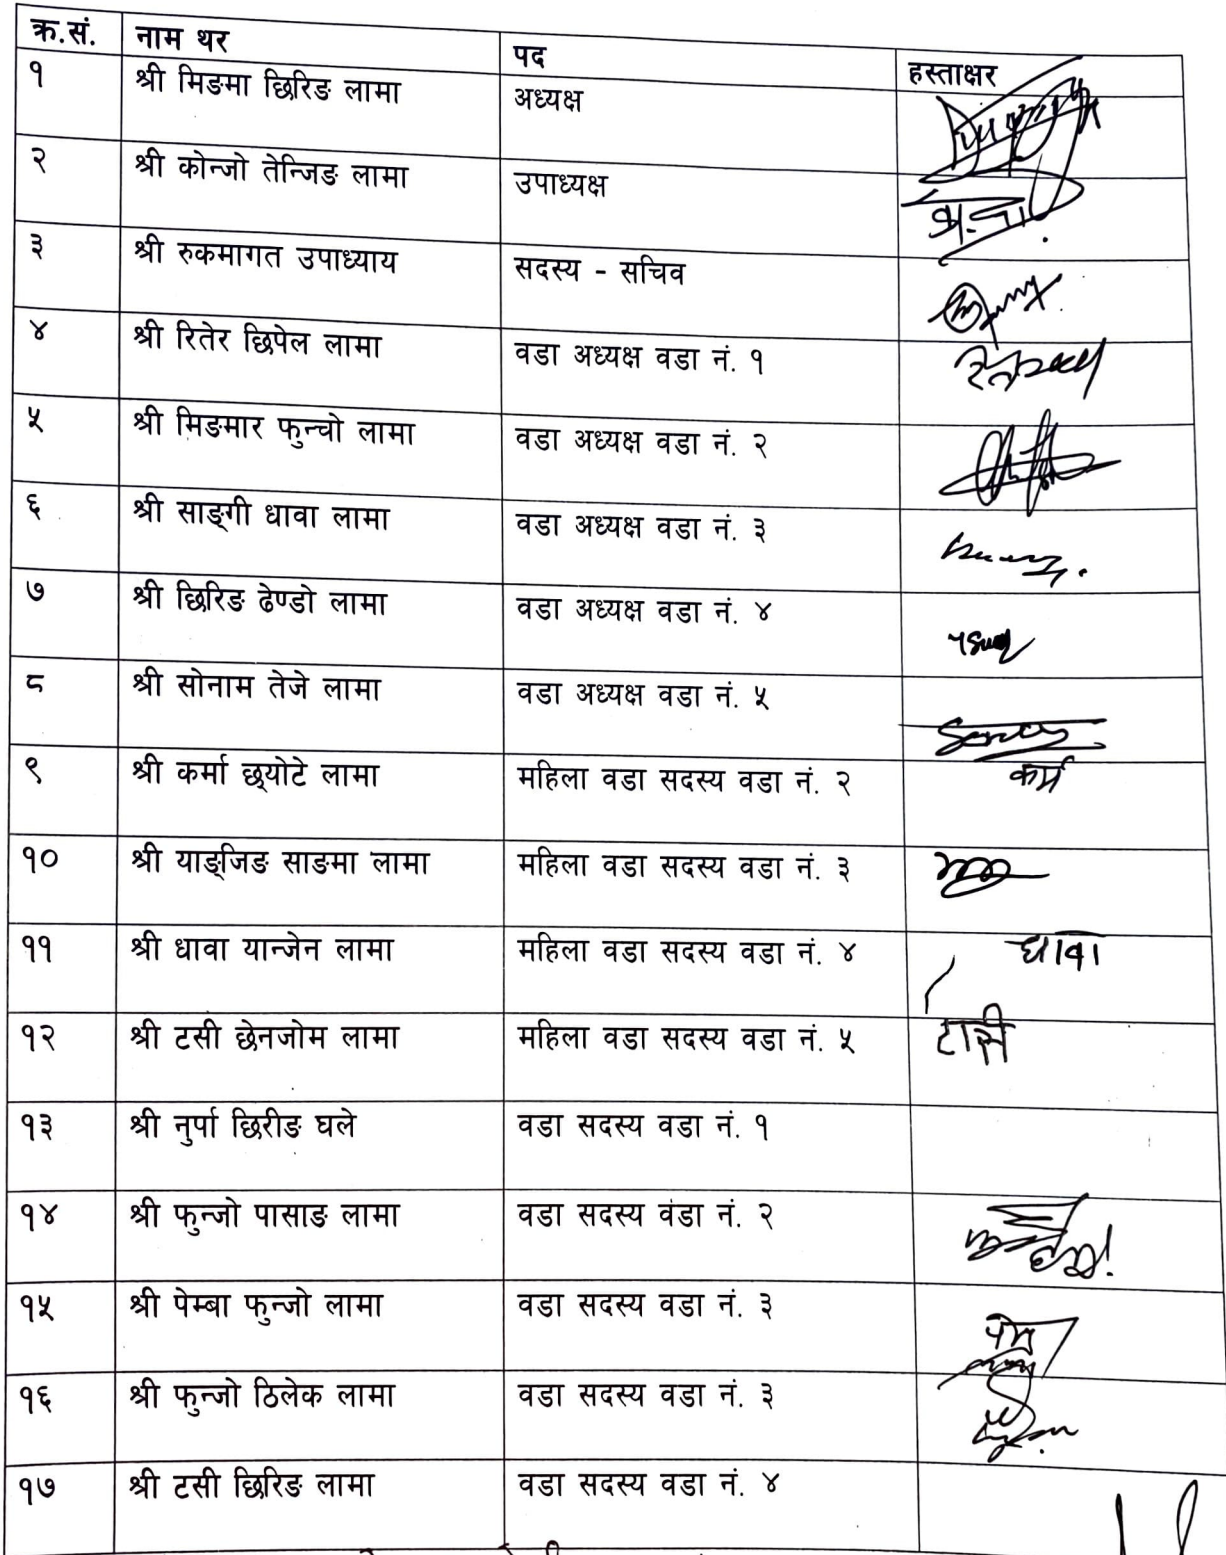 क्र.सं. नाम थर पद हस्ताक्षर
१ श्री मिङमा छिरिङ लामा अध्यक्ष
२ श्री कोन्जो तेन्जिङ लामा उपाध्यक्ष
३ श्री रुकमागत उपाध्याय सदस्य - सचिव
४ श्री रितेर छिपेल लामा वडा अध्यक्ष वडा नं. १
५ श्री मिङमार फुन्चो लामा वडा अध्यक्ष वडा नं. २
६ श्री साङ्गी धावा लामा वडा अध्यक्ष वडा नं. ३
७ श्री छिरिङ ढेण्डो लामा वडा अध्यक्ष वडा नं. ४
८ श्री सोनाम तेजे लामा वडा अध्यक्ष वडा नं. ५
९ श्री कर्मा छ्योटे लामा महिला वडा सदस्य वडा नं. २ कर्म
१० श्री याङ्जिङ साङमा लामा महिला वडा सदस्य वडा नं. ३
११ श्री धावा यान्जेन लामा महिला वडा सदस्य वडा नं. ४ धावा
१२ श्री टसी छेनजोम लामा महिला वडा सदस्य वडा नं. ५ टासी
१३ श्री नुर्पा छिरीङ घले वडा सदस्य वडा नं. १
१४ श्री फुन्जो पासाङ लामा वडा सदस्य वडा नं. २
१५ श्री पेम्बा फुन्जो लामा वडा सदस्य वडा नं. ३
१६ श्री फुन्जो ठिलेक लामा वडा सदस्य वडा नं. ३
१७ श्री टसी छिरिङ लामा वडा सदस्य वडा नं. ४